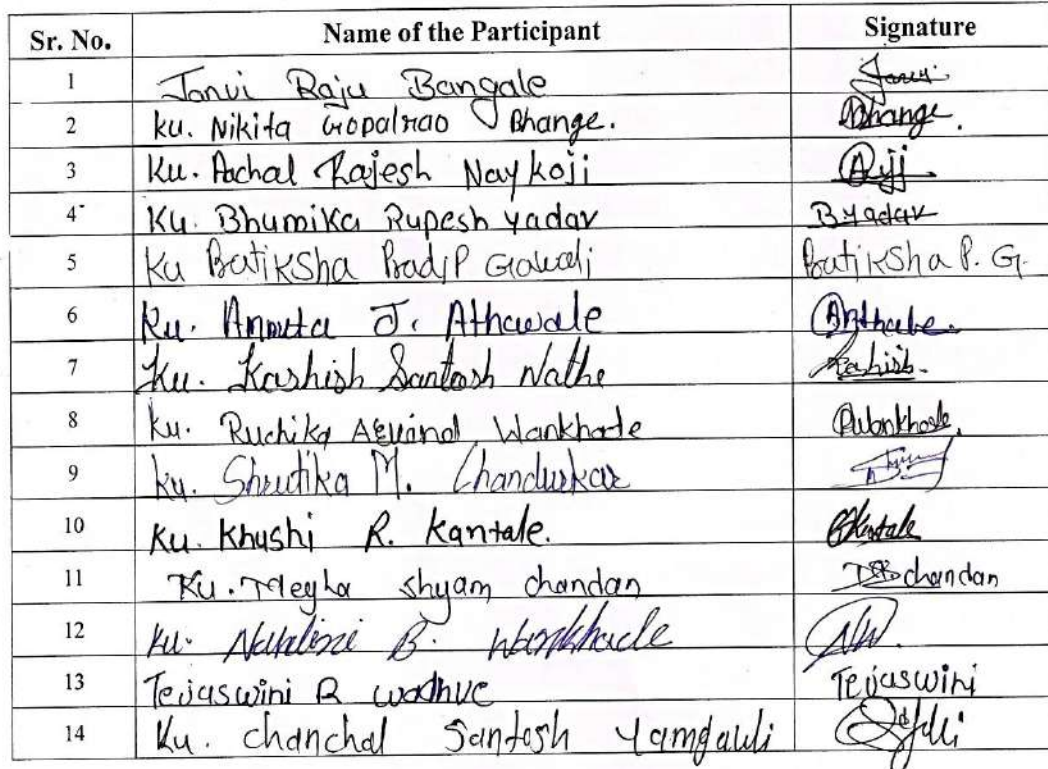 Sr. No. Name of the Participant Signature
1 Janvi Raju Bangale Janvi
2 Ku. Nikita Gopalrao Bhange. Bhange.
3 Ku. Aachal Rajesh Naykoji
4 Ku. Bhumika Rupesh yadav B yadav
5 Ku Pratiksha Pradip Gawali Pratiksha P. G.
6 Ku. Amruta J. Athawale
7 Ku. Kashish Santosh Nathe Kashish.
8 Ku. Ruchika Arvind Wankhade RWankhade.
9 Ku. Shrutika M. Chandurkar
10 Ku. Khushi R. Kantale. Kantale
11 Ku. Megha Shyam chandan chandan
12 Ku. B. Wankhade NW.
13 Tejaswini R Wadhve Tejaswini
14 Ku. Chanchal Santosh Yamgavli